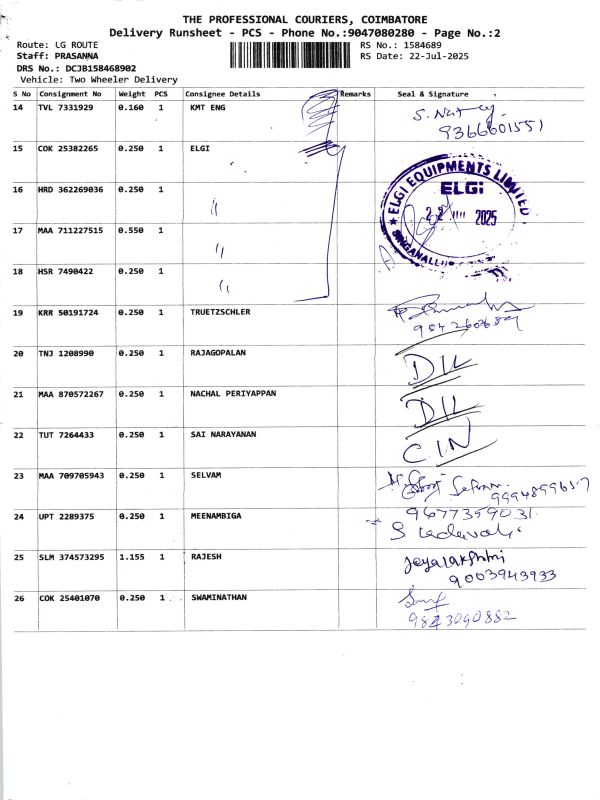 THE PROFESSIONAL COURIERS, COIMBATORE
Delivery Runsheet - PCS - Phone No.:9047080280 - Page No.:2
Route: LG ROUTE
RS No.: 1584689
Staff: PRASANNA
RS Date: 22-Jul-2025
DRS No.: DCJB158468902
Vehicle: Two Wheeler Delivery
S No Consignment No Weight PCS Consignee Details Remarks Seal & Signature
14 TVL 7331929 0.160 1 KMT ENG
9366601551
15 COK 25382265 0.250 1 ELGI
ELGI EQUIPMENTS LIMITED
16 HRD 362269036 0.250 1 "
ELGi
22 2025
17 MAA 711227515 0.550 1 "
SINGANALLUR
18 HSR 7490422 0.250 1 "
19 KRR 50191724 0.250 1 TRUETZSCHLER
20 TNJ 1208990 0.250 1 RAJAGOPALAN
DIL
21 MAA 870572267 0.250 1 NACHAL PERIYAPPAN
DIL
22 TUT 7264433 0.250 1 SAI NARAYANAN
CIN
23 MAA 709705943 0.250 1 SELVAM
24 UPT 2289375 0.250 1 MEENAMBIGA
9677359031
25 SLM 374573295 1.155 1 RAJESH
Jeyalakshmi
9003943933
26 COK 25401070 0.250 1 SWAMINATHAN
9843090882